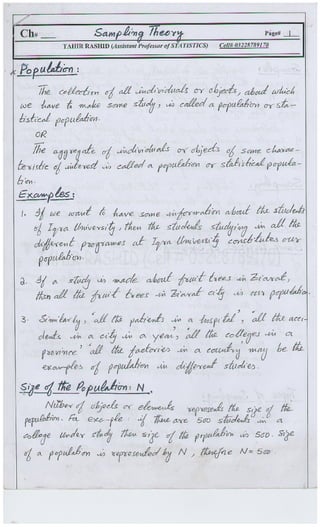 Ch# Sampling Theory Page# 1
TAHIR RASHID (Assistant Professor of STATISTICS) Cell# 03228789170
* Population:
The collection of all individuals or objects, about which
we have to make some study, is called a population or sta-
tistical population.
OR
The aggregate of individuals or objects of some charac-
teristic of interest is called a population or statistical popula-
tion.
Examples:
1. If we want to have some information about the students
of Iqra University, then the students studying in all the
different programes at Iqra University constitutes our
population.
2. If a study is made about fruit trees in Ziarat,
then all the fruit trees in Ziarat city is our population.
3. Similarly, "all the patients in a hospital", "all the acci-
dents in a city in a year", "all the colleges in a
province" "all the factories in a country may be the
examples of population in different studies.
Size of the Population: N.
Number of objects or elements represents the size of the
population. For example if there are 500 students in a
college under study then size of the population is 500. Size
of a population is represented by N, therefore N = 500.